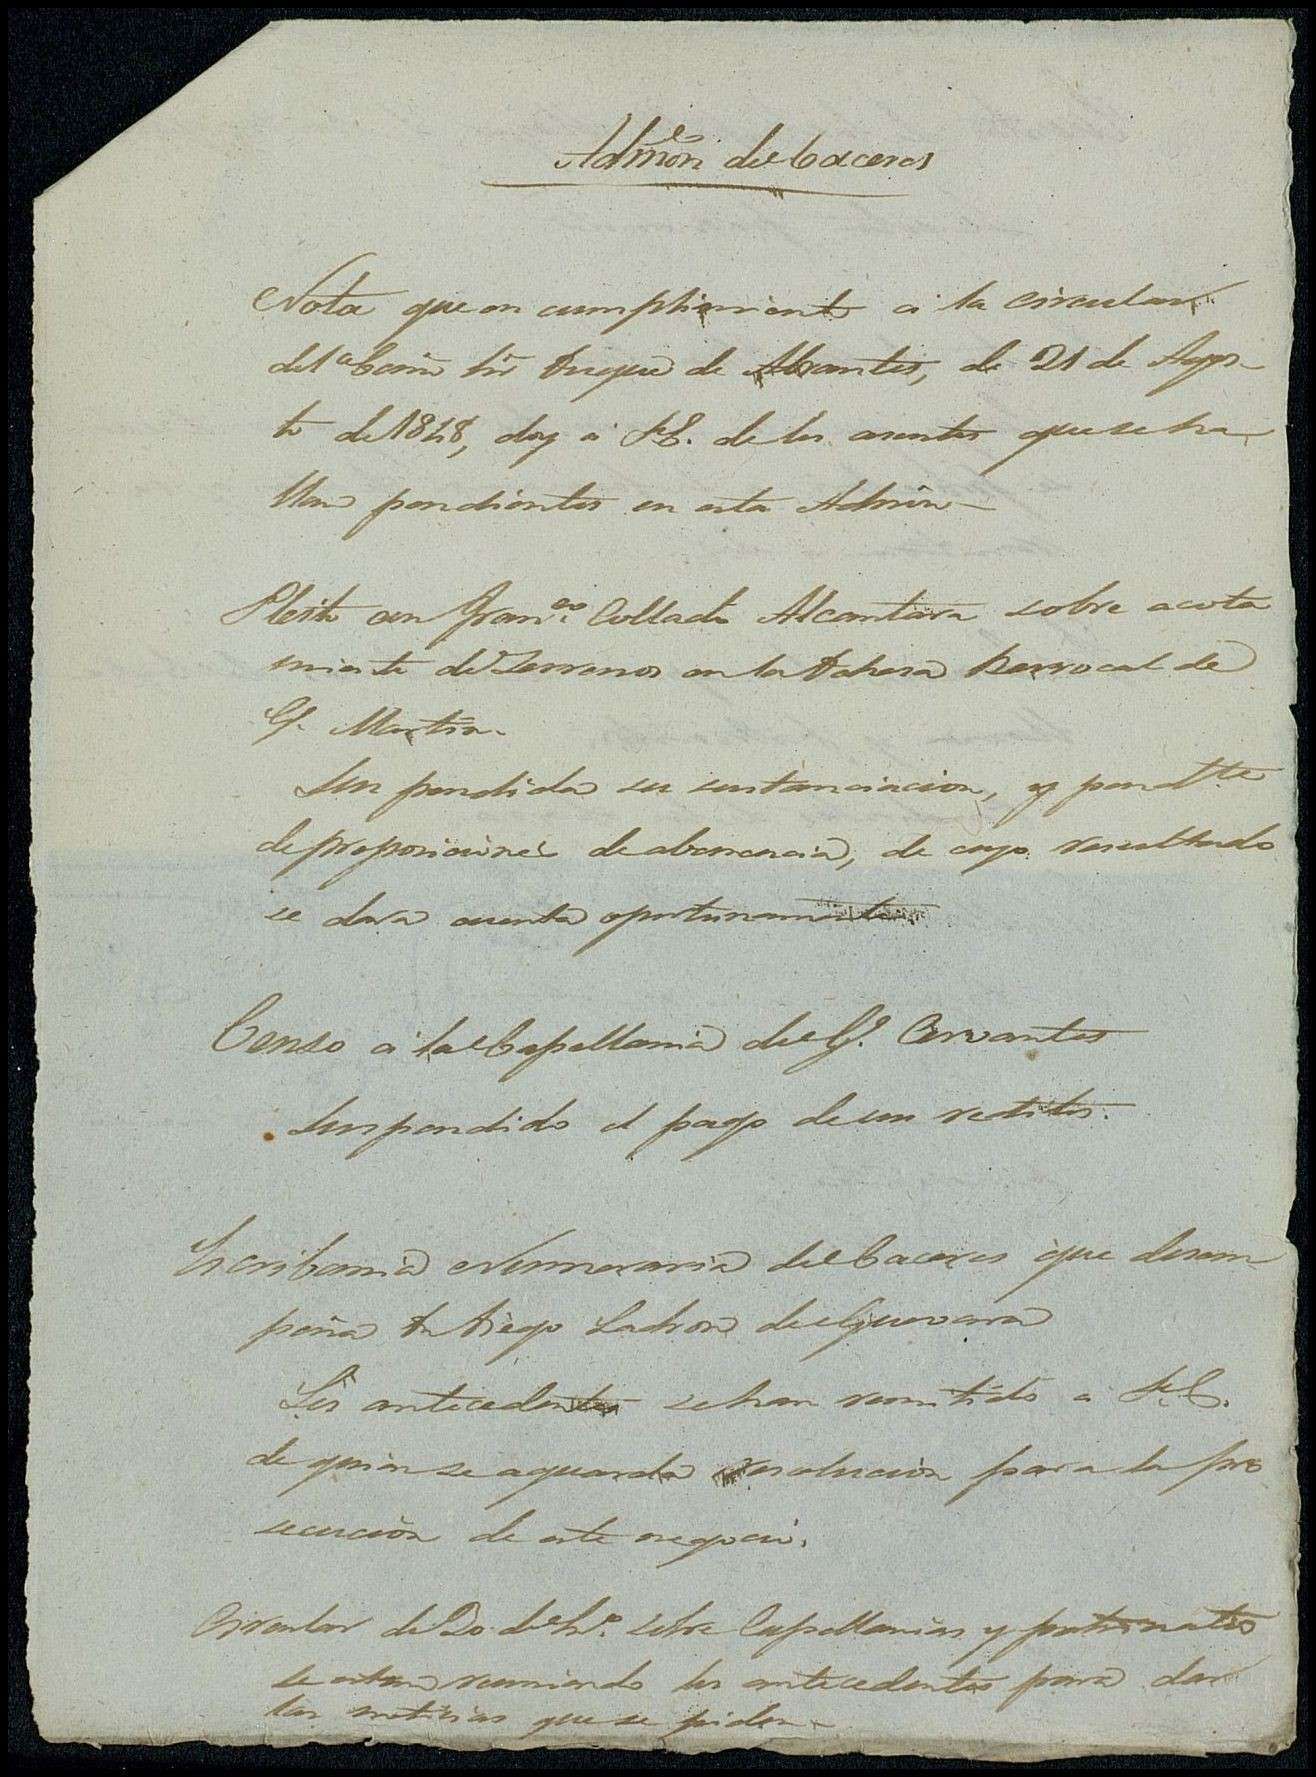 Admon de Caceres
Nota que en cumplimiento á la circular
del Excmo Sr Duque de Abrantes, de 21 de Agos-
to de 1848, doy á S.E. de los asuntos que se ha-
llan pendientes en esta Admon
Pleito con Franco. Collado Alcantara sobre acota
miento de Terrenos en la Dehesa Berrocal de
Sn. Martin.
Suspendida su sustanciacion, y pendte
de proposiciones de abenencia, de cuyo resultado
se dara cuenta oportunamente
Censo á la Capellania de Go. Cervantes
Suspendido el pago de sus reditos.
Escribania Numeraria de Caceres que desem-
peña Dn Diego Ladron de Guevara
Los antecedentes se han remitido a S.E.
de quien se aguarda resolucion para la pro
secucion de este negocio.
Circular de 20 de sobre Capellanias y patronatos
se estan reuniendo los antecedentes para dar
las noticias que se piden.